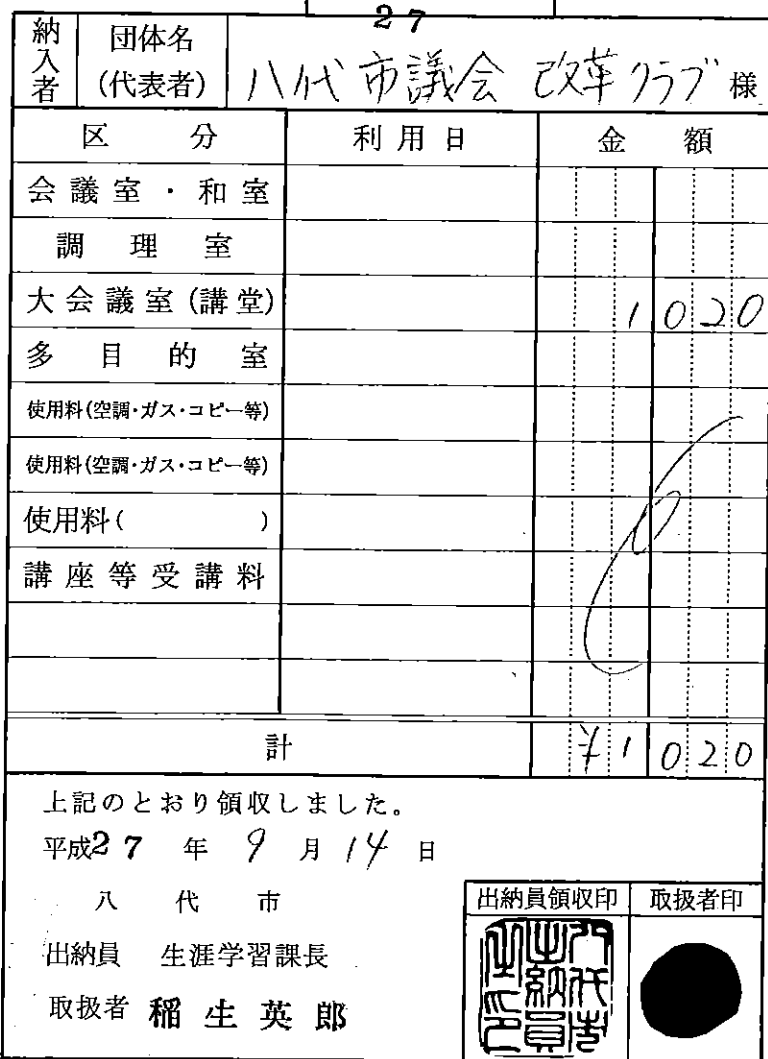 27
納入者 団体名(代表者) 八代市議会 改革クラブ 様
区分 利用日 金額
会議室・和室
調理室
大会議室(講堂) 1020
多目的室
使用料(空調・ガス・コピー等)
使用料(空調・ガス・コピー等)
使用料( )
講座等受講料
計 ¥1020
上記のとおり領収しました。
平成27年9月14日
八代市
出納員 生涯学習課長
取扱者 稲生英郎
出納員領収印 取扱者印
八代市
出納員
之印